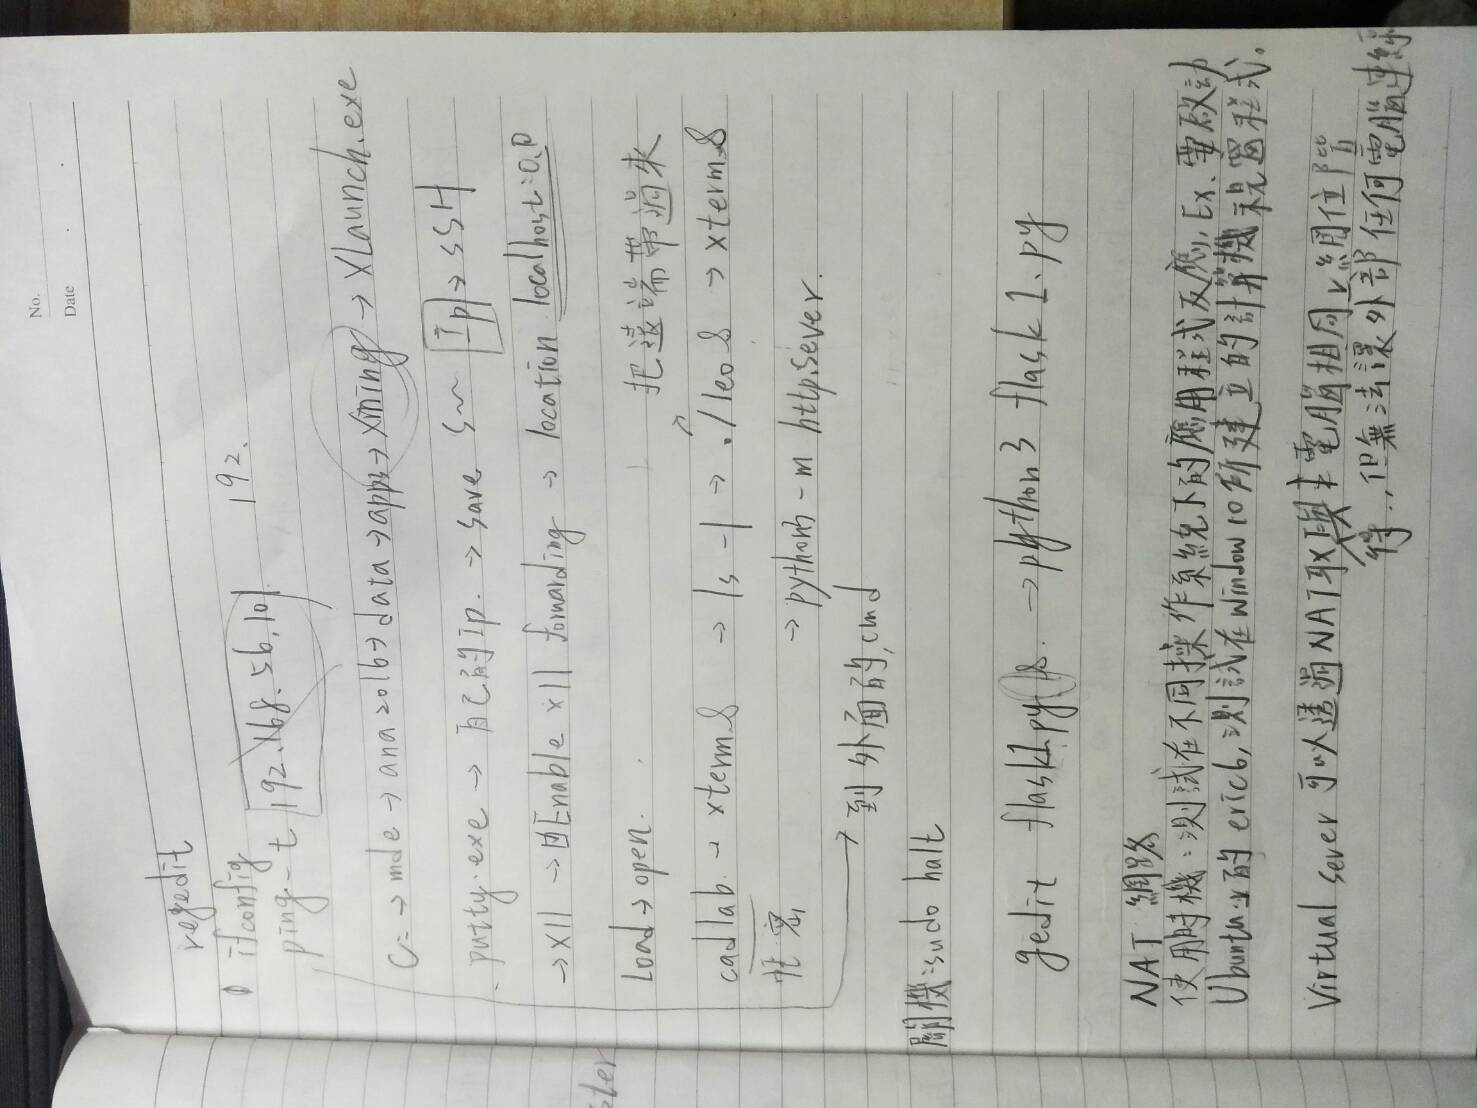 No.
Date
regedit
ifconfig 192.
ping -t 192.168.56.101
C: → mde → ana2016 → data → apps → Xming → XLaunch.exe
putty.exe → 自己的ip. → save ip → SSH
→ X11 → Enable x11 forwarding → location localhost=0.0
Load → open. 把遠端帶過來
cadlab → xterm & → ls -l → ./leo & → xterm &
→ python3 -m http.sever
到外面的cmd
關機:sudo halt
gedit flask1.py & → python3 flask1.py
NAT 網路
使用時機:測試在不同操作系統下的應用程式反應, Ex、要啟動
Ubuntu上的eric6,測試在Window 10所建立的計算機視窗程式。
Virtual sever 可以透過NAT取與主電腦相同上網位階
但無法讓外部任何電腦連線